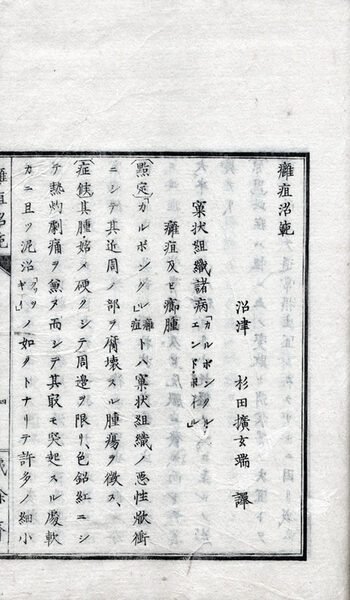 癰疽治範
沼津 杉田擴玄端 譯
窠状組織諸病「カルボンクル エンド
癰疽及ヒ癤腫
(點定)「カルボンクル」癰疽トハ窠状組織ノ悪性焮衝
ニシテ其近周ノ部ヲ腐壊スル腫瘍ヲ徴ス、
(症候)其腫始メ硬クシテ周邊ヲ限リ色銘紅ニシ
テ熱灼劇痛ヲ兼ヌ而シテ其最モ突起スル處軟
カニ且ツ泥沼ノ如クトナリテ許多ノ細小
癰疽治範
四